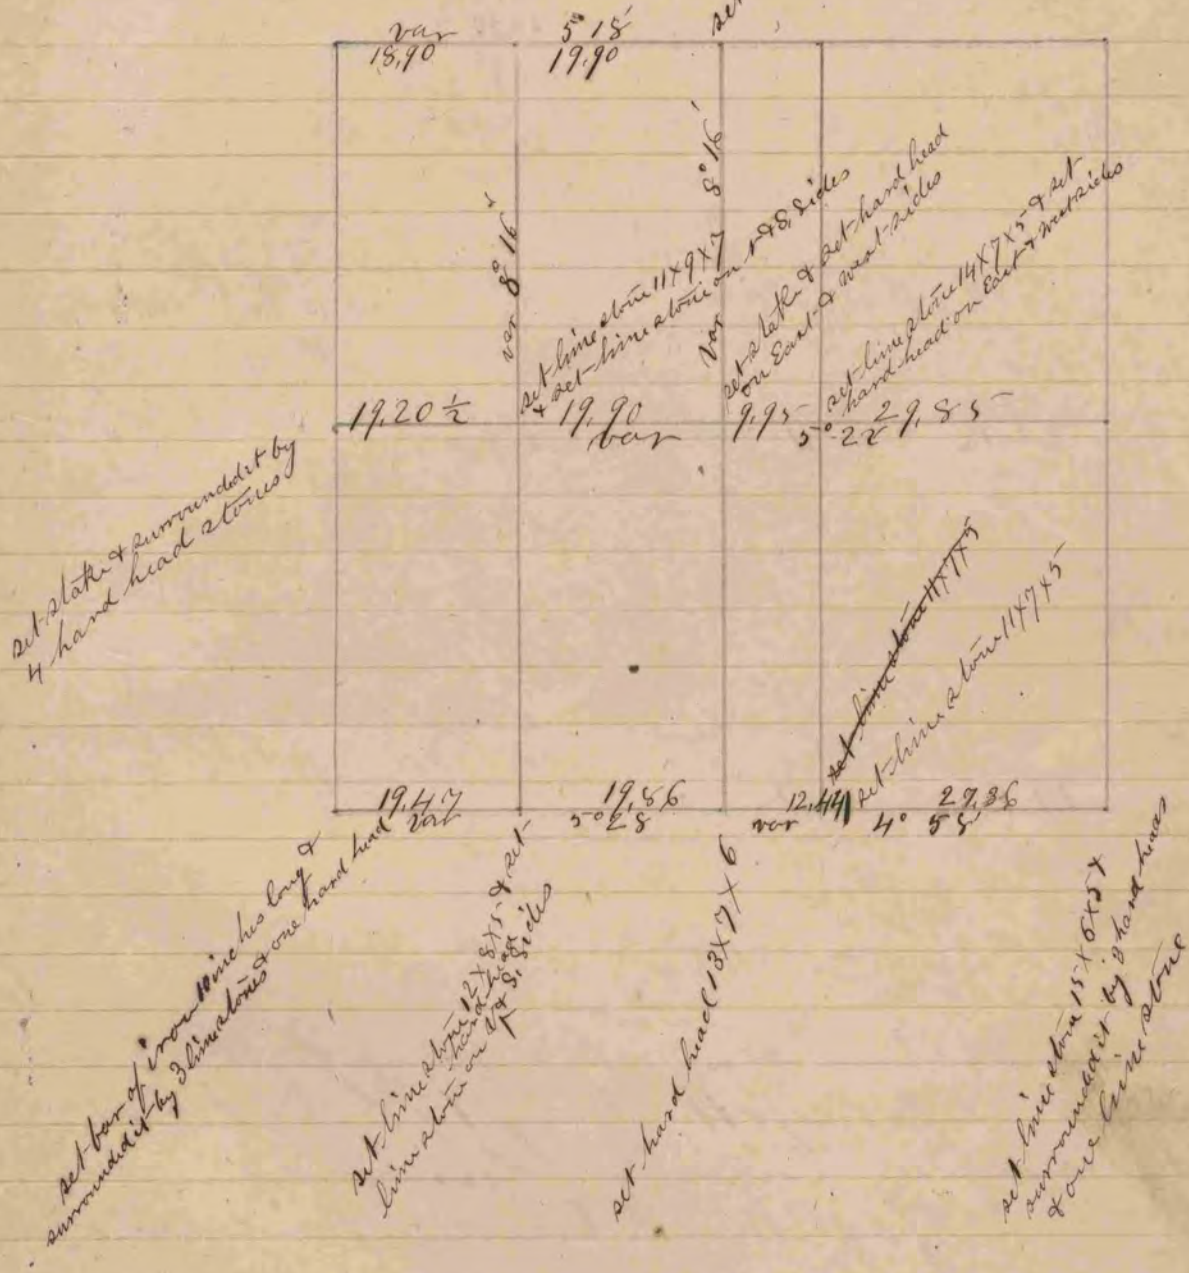 var 5° 18
18,90 19,90
set
var 8° 16'
var 8° 16'
set lime stone 11X9X7
& set lime stone on & S, Sides
set stake & set hard head
on East & West sides
set lime stone 14X7X5 & set
hard head on East & West sides
19,20 1/2 19,90 9,95 29,85
var 5° 22
set stake & surrounded it by
4 hard head stones
set lime stone 11X7X5
set lime stone 11X7X5
19,47 19,86 12,44 29,86
var 5° 28 var 4° 58
set bar of iron 10 inches long &
surrounded it by 3 lime stones & one hard head
set lime stone 12X8X5 & set
hard head
lime stone on & S, Sides
set hard head 13X7X6
set lime stone 15X6X5 &
surrounded it by 3 hard heads
& one lime stone